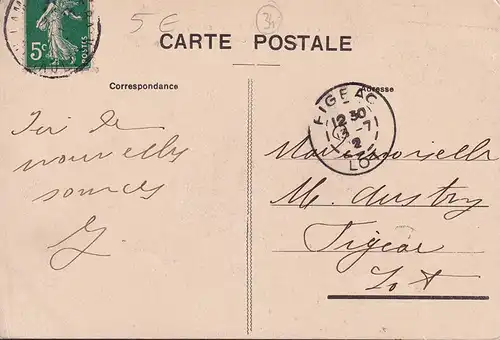 5 €
34
5c
POSTES
CARTE POSTALE
Correspondance
Adresse
FIGEAC
12 30
3 -7
2
LOT
nouvelles
sources
Mademoiselle
M.
Figeac
Lot